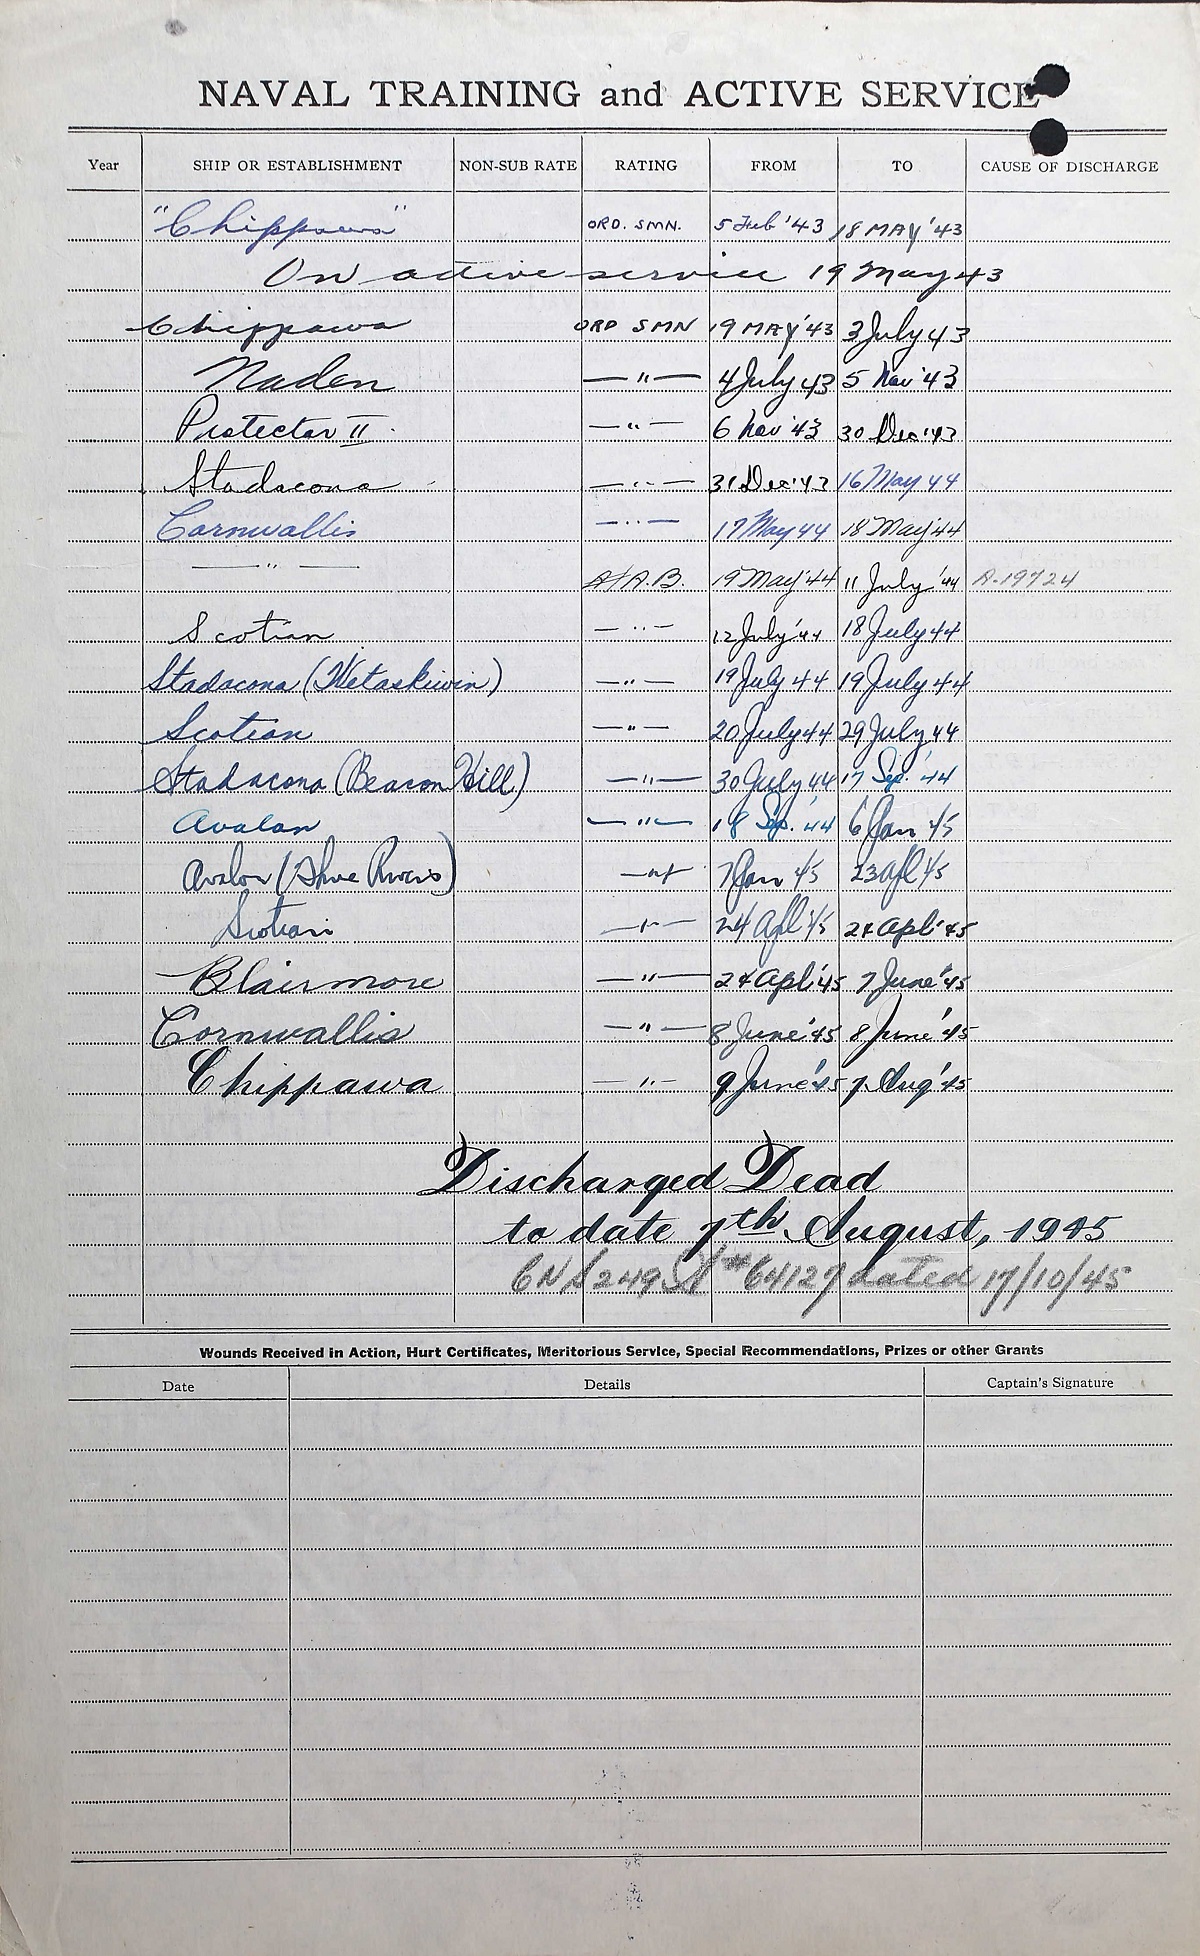 NAVAL TRAINING and ACTIVE SERVICE
Year SHIP OR ESTABLISHMENT NON-SUB RATE RATING FROM TO CAUSE OF DISCHARGE
"Chippawa" ORD. SMN. 5 Feb '43 18 MAY '43
On active service 19 May 43
Chippawa ORD SMN 19 MAY '43 3 July 43
Naden — " — 4 July 43 5 Nov '43
Protector II — " — 6 Nov '43 30 Dec '43
Stadacona — " — 31 Dec '43 16 May 44
Cornwallis — " — 17 May 44 18 May '44
— " — A/A.B. 19 May '44 11 July '44 A-19724
Scotian — " — 12 July '44 18 July 44
Stadacona (Wetaskiwin) — " — 19 July 44 19 July 44
Scotian — " — 20 July 44 29 July 44
Stadacona (Beacon Hill) — " — 30 July 44 17 Sep. '44
Avalon — " — 18 Sep. '44 6 Jan 45
Avalon (Three Rivers) — " — 7 Jan 45 23 Apl 45
Scotian — " — 24 Apl 45 24 Apl '45
Blairmore — " — 24 Apl '45 7 June '45
Cornwallis — " — 8 June '45 8 June '45
Chippawa — " — 9 June '45 7 Aug '45
Discharged Dead
to date 7th August, 1945
64127 dated 17/10/45
Wounds Received in Action, Hurt Certificates, Meritorious Service, Special Recommendations, Prizes or other Grants
Date Details Captain's Signature